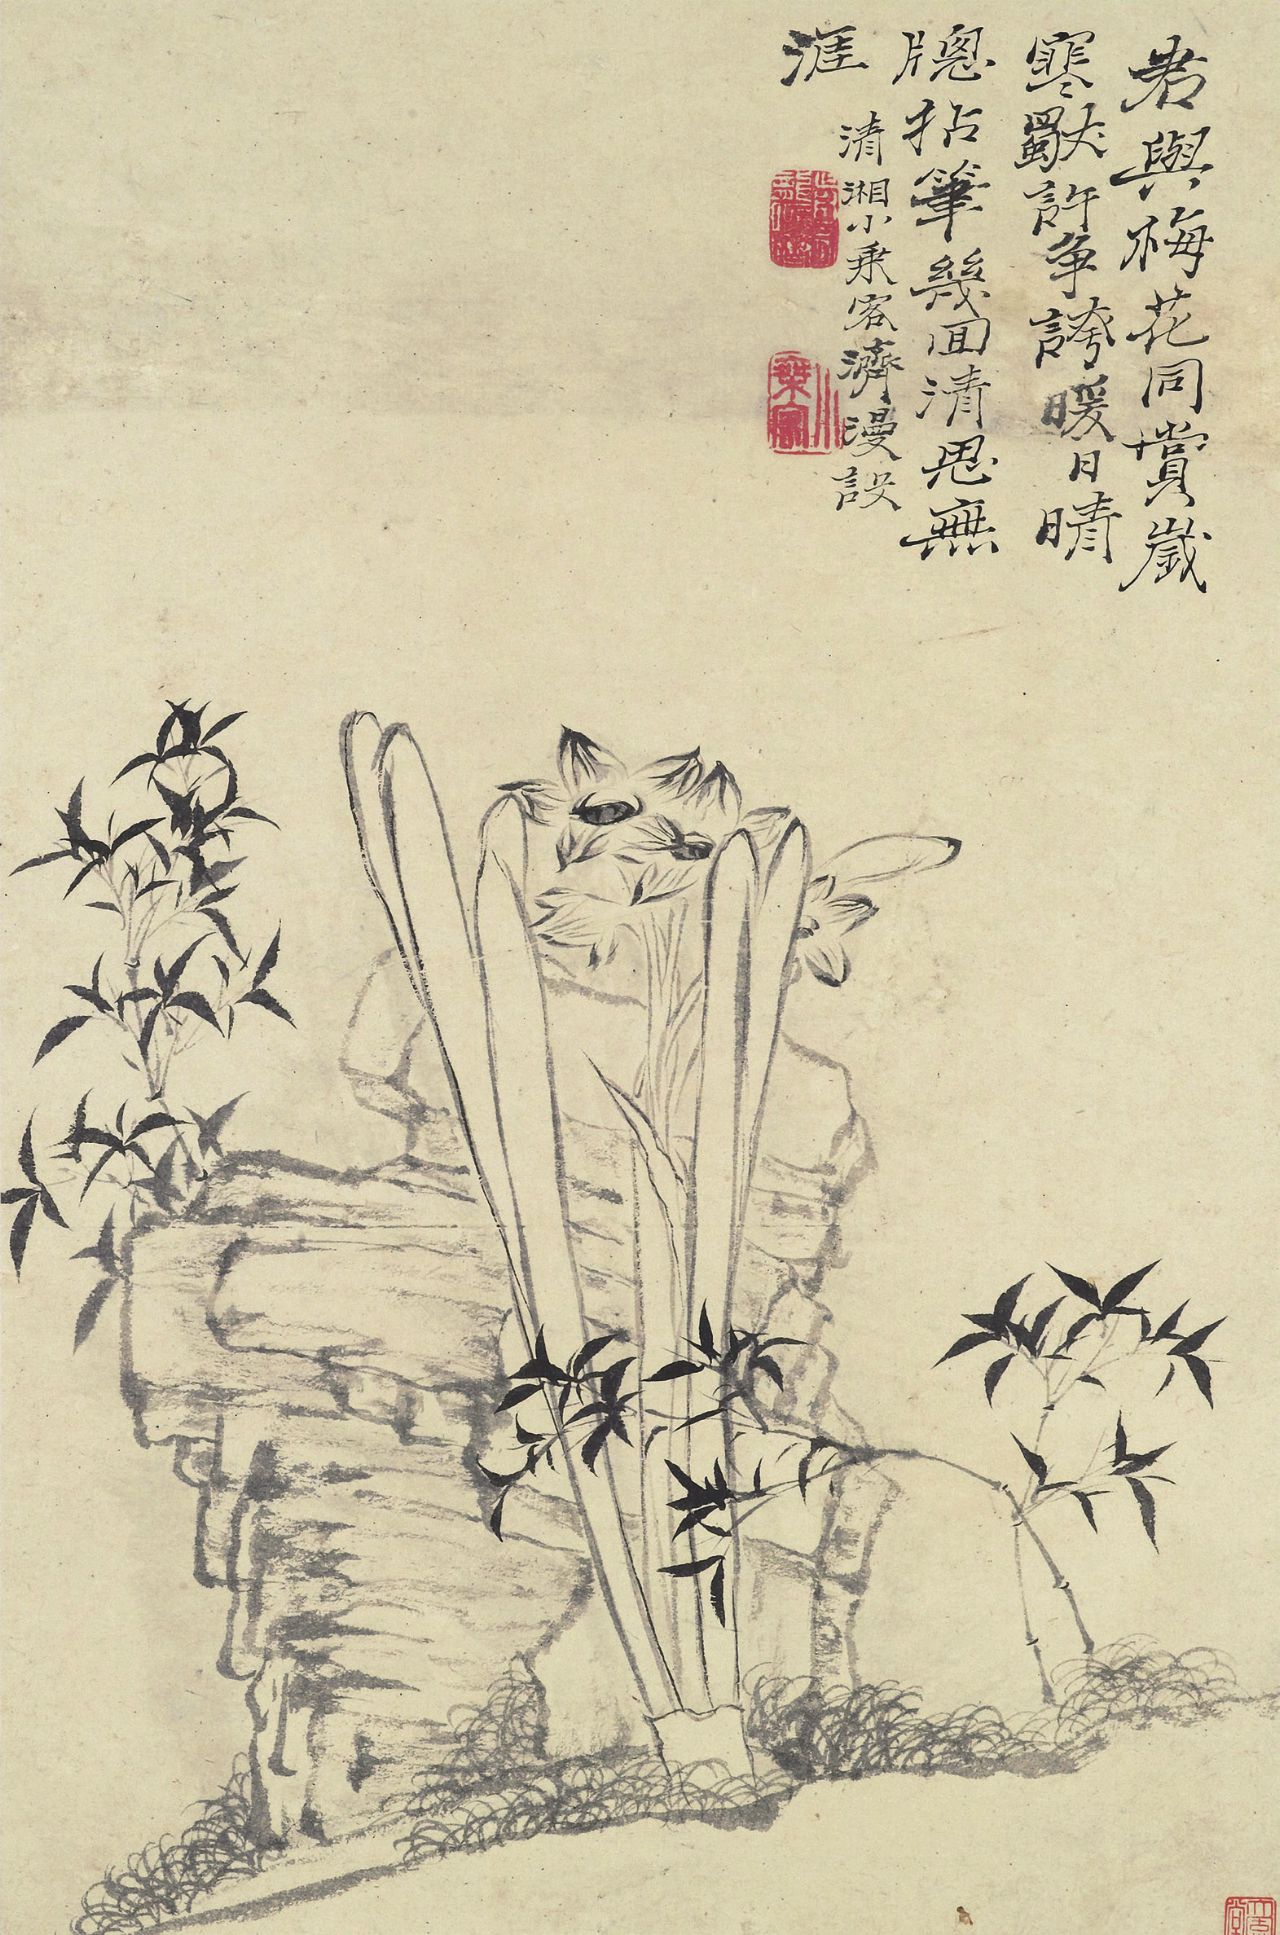 君與梅花同賞歲
寒獸許爭誇暖日晴
牕拈筆幾回清思無
涯
清湘小乘客濟漫設